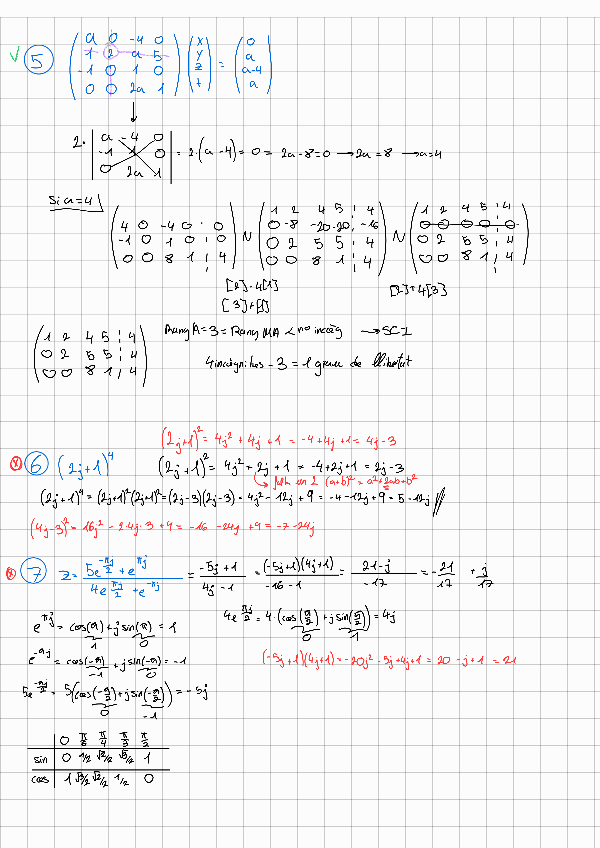 ✓ 5 ( a 0 -4 0 / 1 2 a 5 / -1 0 1 0 / 0 0 2a 1 ) ( x / y / z / t ) = ( 0 / a / a-4 / a )
2· | a -4 0 / -1 1 0 / 0 2a 1 | = 2·(a-4) = 0 = 2a-8=0 → 2a=8 → a=4
Si a=4
( 4 0 -4 0 ¦ 0 / -1 0 1 0 ¦ 0 / 0 0 8 1 ¦ 4 ) N ( 1 2 4 5 ¦ 4 / 0 -8 -20 -20 ¦ -16 / 0 2 5 5 ¦ 4 / 0 0 8 1 ¦ 4 ) N ( 1 2 4 5 ¦ 4 / 0 0 0 0 ¦ 0 / 0 2 5 5 ¦ 4 / 0 0 8 1 ¦ 4 )
[2]-4[1] [2]+4[3]
[3]+[1]
( 1 2 4 5 ¦ 4 / 0 2 5 5 ¦ 4 / 0 0 8 1 ¦ 4 )
Rang A = 3 = Rang MA < nº incòg → SCI
4 incògnites - 3 = 1 grau de llibertat
(2j+1)² = 4j² + 4j + 1 = -4+4j+1 = 4j-3
6 (2j+1)⁴ (2j+1)² = 4j² + 2j + 1 = -4+2j+1 = 2j-3
falta un 2 (a+b)² = a²+2ab+b²
(2j+1)⁴ = (2j+1)²(2j+1)² = (2j-3)(2j-3) = 4j² - 12j + 9 = -4-12j+9 = 5-12j
(4j-3)² = 16j² - 2·4j·3 + 9 = -16 - 24j + 9 = -7-24j
7 z = 5e^(-πj/2) + e^(πj) / 4e^(πj/2) + e^(-πj) = -5j+1 / 4j-1 = (-5j+1)(4j+1) / -16-1 = 21-j / -17 = -21/17 + j/17
e^(πj) = cos(π) + j sin(π) = 1
1 0
4e^(πj/2) = 4·(cos(π/2) + j sin(π/2)) = 4j
0 1
e^(-πj) = cos(-π) + j sin(-π) = -1
-1 0
(-5j+1)(4j+1) = -20j² - 5j + 4j + 1 = 20 - j + 1 = 21
5e^(-πj/2) = 5(cos(-π/2) + j sin(-π/2)) = -5j
0 -1
0 π/6 π/4 π/3 π/2
sin 0 1/2 √2/2 √3/2 1
cos 1 √3/2 √2/2 1/2 0